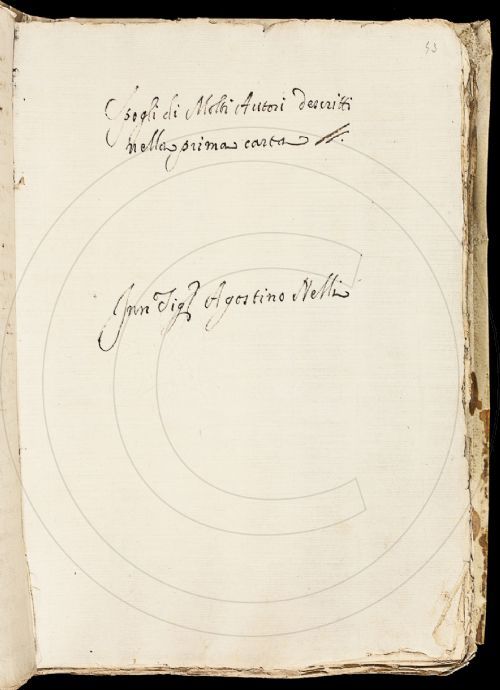 53
Spogli di Molti Autori descritti
nella prima carta
Sig.r Agostino Nelli